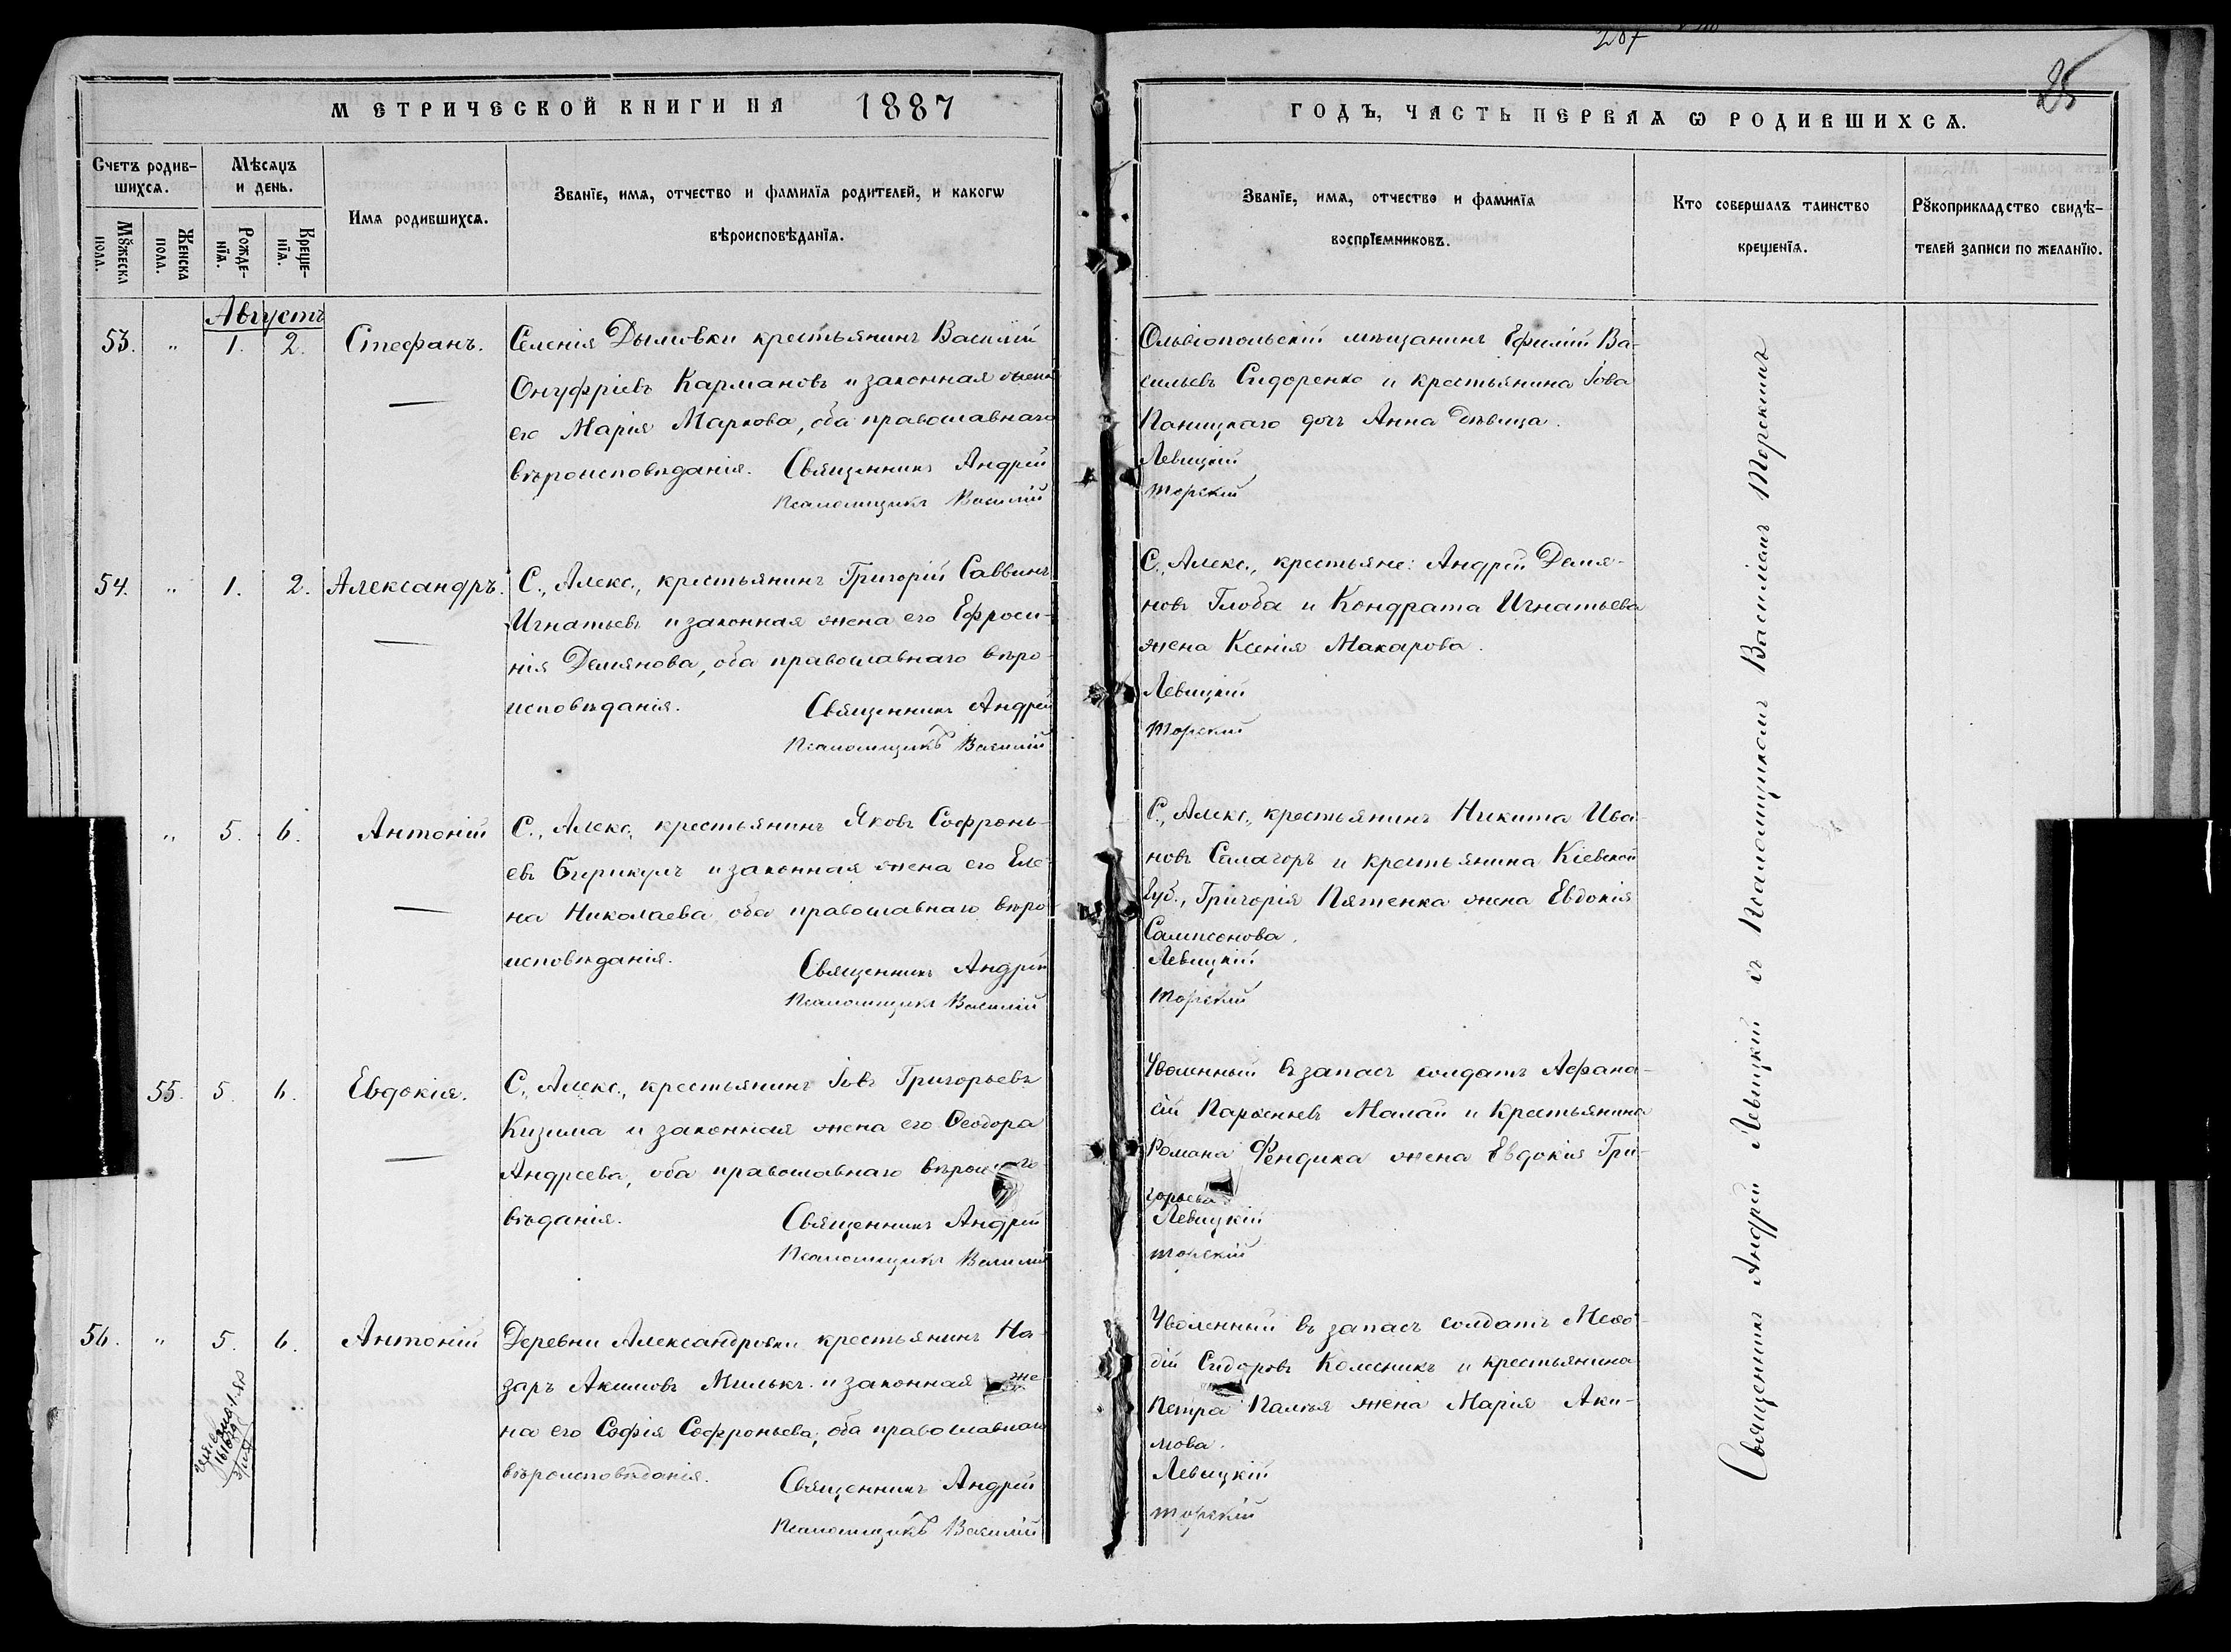 207
25
МЕТРИЧЕСКОЙ КНИГИ НА 1887
ГОДЪ, ЧАСТЬ ПЕРВАЯ Ѡ РОДИВШИХСѦ.
Счетъ родив-
шихсѧ.
Мѣсѧцъ
и день.
Мꙋжеска
пола.
Женска
пола.
Рожде-
нїѧ.
Креще-
нїѧ.
Имѧ родившихсѧ.
Званїе, имѧ, отчество и фамилїѧ родителей, и какогѡ
вѣроисповѣданїѧ.
Званїе, имѧ, отчество и фамилїѧ
воспрїемниковъ.
Кто совершалъ таинство
крещенїѧ.
Рꙋкоприкладство свидѣ-
телей записи по желанїю.
Августъ
53. " 1. 2. Стефанъ.
Селенія Дымовки крестьянинъ Василій
Онуфріевъ Кармановъ и законная жена
его Марія Маркова, оба православнаго
вѣроисповѣданія. Священникъ Андрей
Псаломщикъ Василій
Ольвіопольскій мѣщанинъ Ефимій Ва-
сильевъ Сидоренко и крестьянина Іова
Паницкаго дочь Анна дѣвица.
Левицкій
Торскій
54. " 1. 2. Александръ.
С., Алекс., крестьянинъ Григорій Саввинъ
Игнатьевъ и законная жена его Ефроси-
нія Демянова, оба православнаго вѣро-
исповѣданія. Священникъ Андрей
Псаломщикъ Василій
С., Алекс., крестьяне: Андрей Демя-
новъ Глоба и Кондрата Игнатьева
жена Ксенія Макарова.
Левицкій
Торскій
" 5. 6. Антоній
С., Алекс., крестьянинъ Яковъ Софронь-
евъ Бурикулъ и законная жена его Еле-
на Николаева оба православнаго вѣро-
исповѣданія. Священникъ Андрей
Псаломщикъ Василій
С., Алекс., крестьянинъ Никита Ива-
новъ Салагоръ и крестьянина Кіевской
губ., Григорія Пятенка жена Евдокія
Сампсонова.
Левицкій
Торскій
55. 5. 6. Евдокія.
С., Алекс., крестьянинъ Іовъ Григорьевъ
Кизима и законная жена его Ѳеодора
Андреева, оба православнаго
вѣданія. Священникъ Андрей
Псаломщикъ Василій
Уволенный въ запасъ солдатъ Аѳана-
сій Парѳеньевъ Малай и крестьянина
Романа Фендика жена Евдокія Гри-
горьева
Левицкій
Торскій
56. " 5. 6. Антоній
Деревни Александровки крестьянинъ На-
заръ Акимовъ Милькъ и законная же
на его Софія Софроньева, оба православнаго
вѣроисповѣданія. Священникъ Андрей
Псаломщикъ Василій
Уволенный въ запасъ солдатъ Меѳо-
дій Сидоровъ Колесникъ и крестьянина
Петра Палія жена Марія Аки-
мова.
Левицкій
Торскій
Священникъ Андрей Левицкій съ Псаломщикомъ Василіемъ Торскимъ